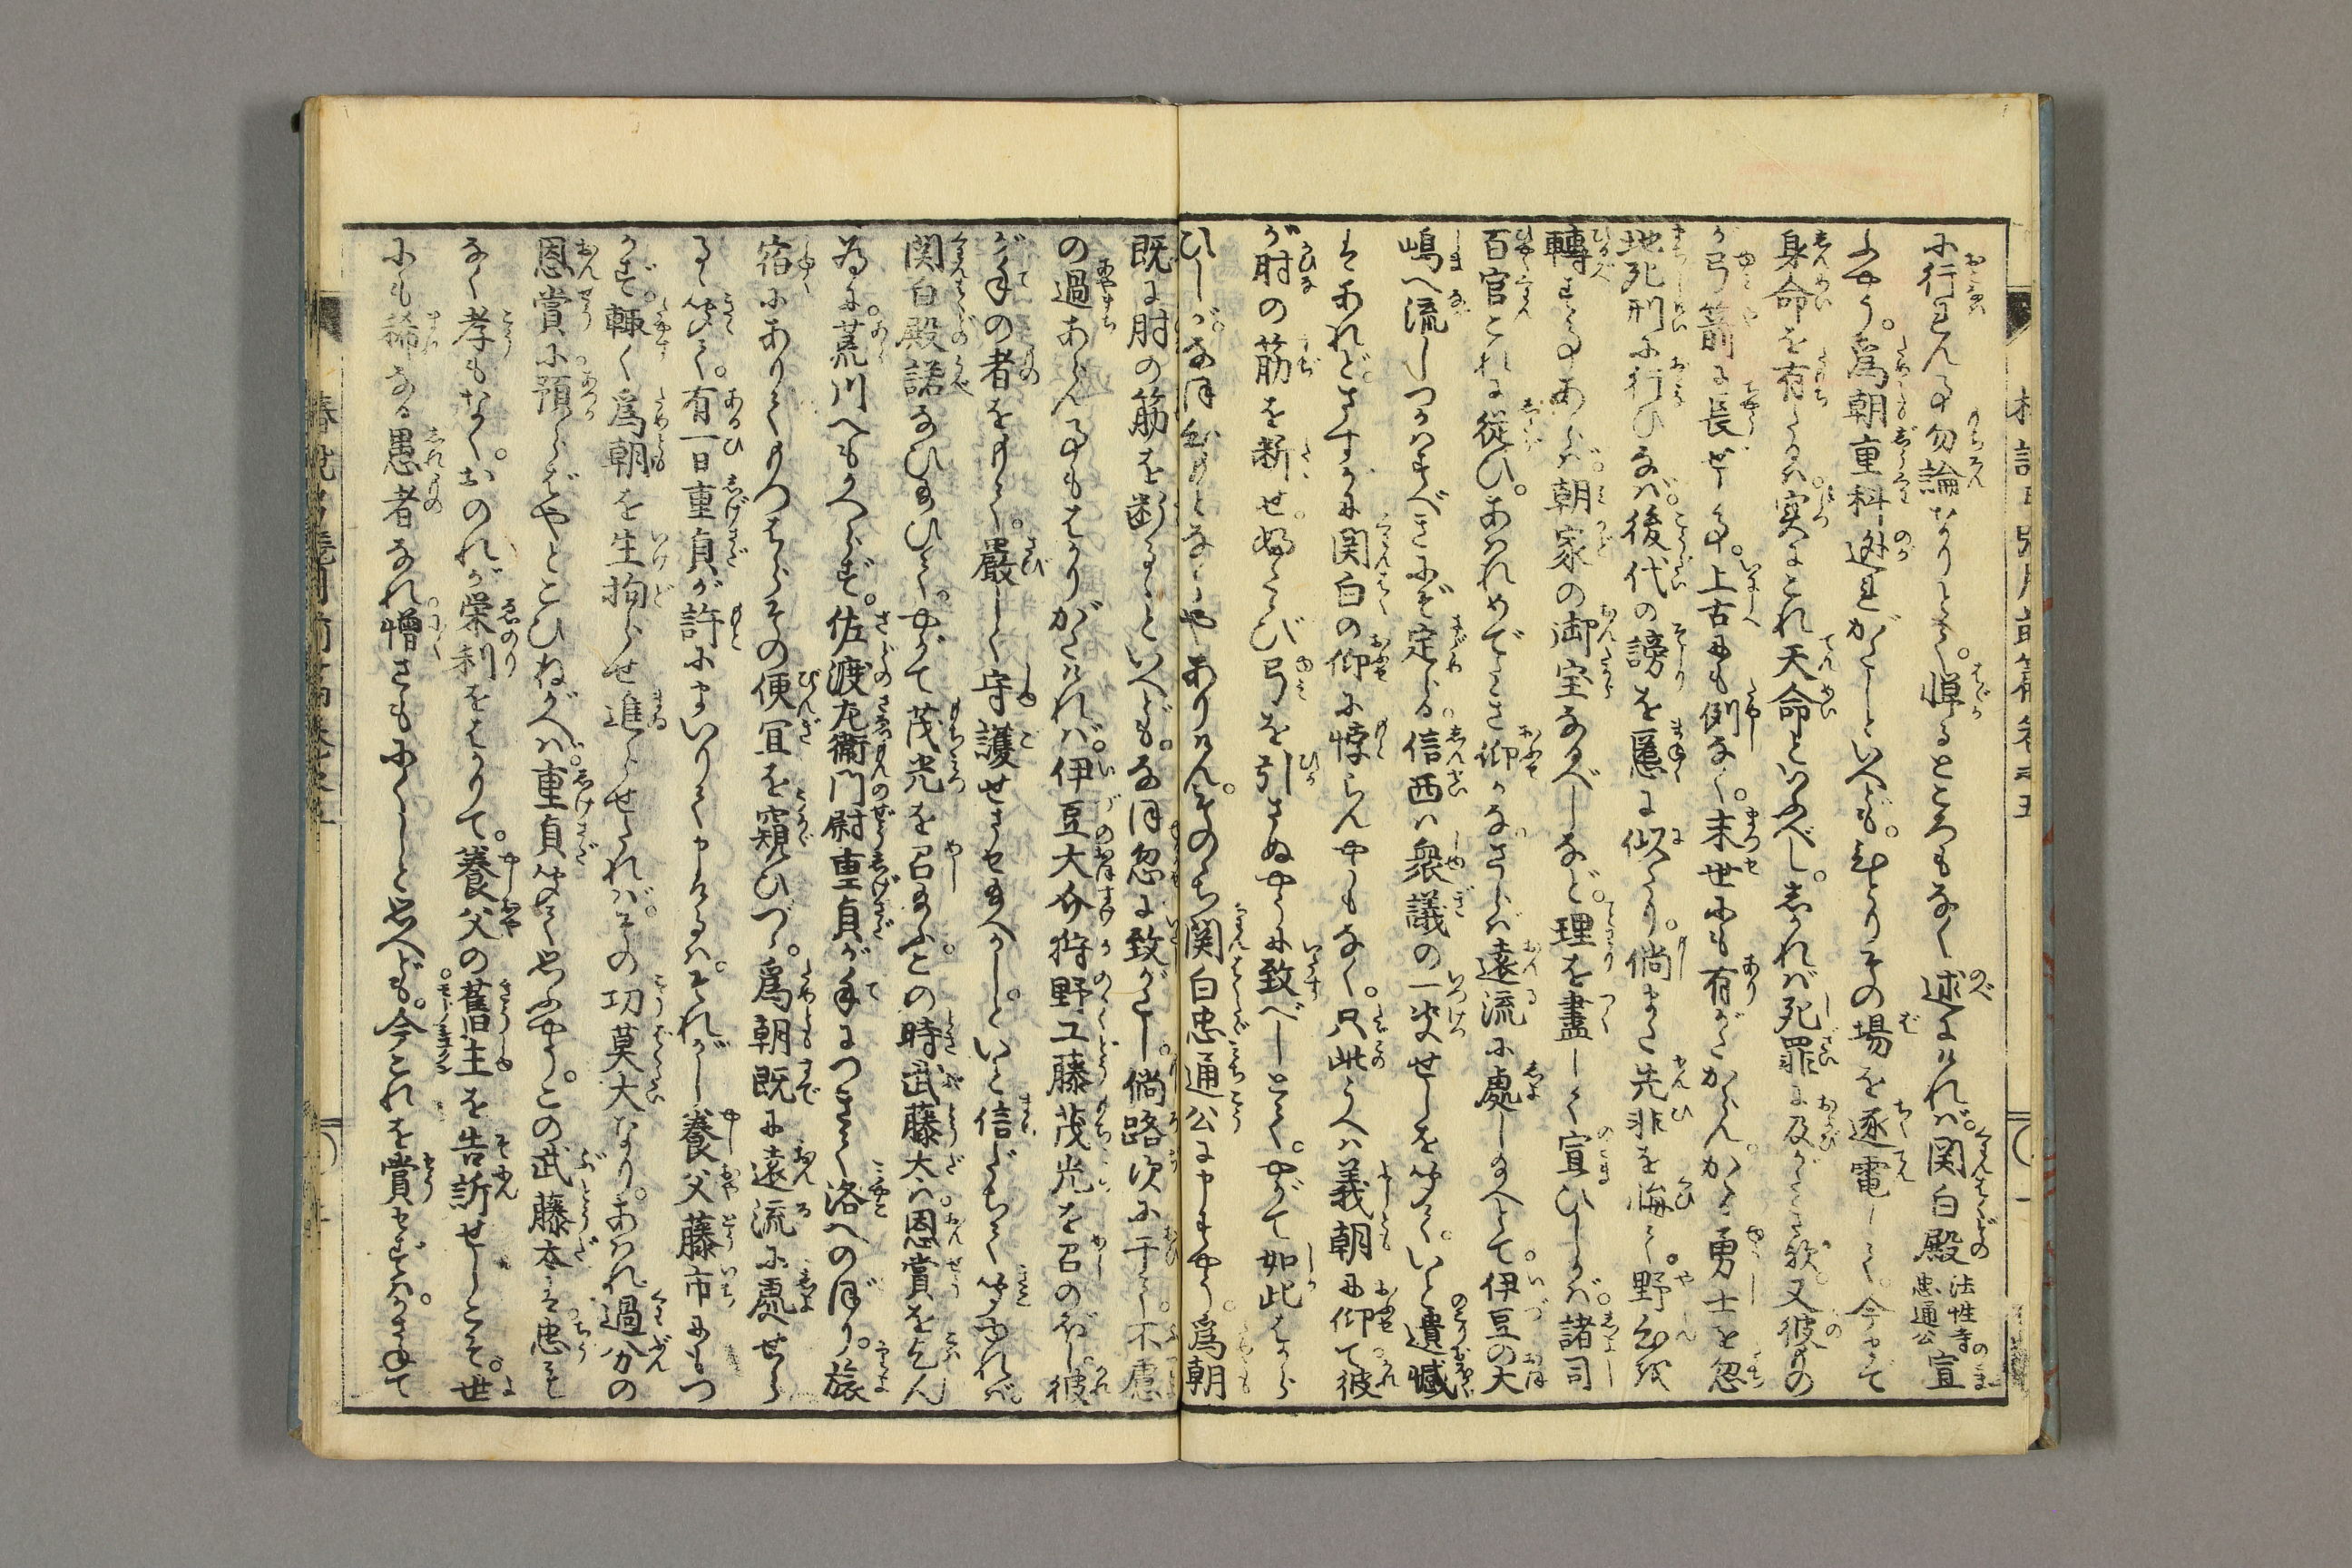 に行れん事勿論なりとて。憚るところもなく述にければ。関白殿 法性寺忠通公 宣
ふやう。為朝重科遁れがたしといへども。ひとりその場を逐電して。今まで
身命を有たるは。実にこれ天命といふべし。しかれば死罪に及びがたき歟。又彼もの
が弓箭に長ぜし事。上古にも例なく。末世にも有がたかるべし。かゝる勇士を忽
地死刑に行ひなば。後代の謗を匿に似たり。倘また先非を悔て。野心を
轉ずる事あらば。朝家の御宝なるべしなど。理を盡して宣ひしかば。諸司
百官これに従ひ。あはれめでたき仰かな。さらば遠流に處し給へとて。伊豆の大
嶋へ流しつかはすべきにぞ定る。信西は衆議の一决せしを聞て。いと遺憾
はあれど。さすがに関白の仰に悖らんやうもなく。只此うへは義朝に仰て彼
が肘の筋を断せ。ふたゝび弓を引さぬやうに致べしとて。やがて如此はから
ひしが。なほ心もとなくやありけん。そののち関白忠通公に申すやう。為朝
既に肘の筋を断るゝといへども。なほ忽に致がたし。倘路次に于て。不慮
の過あらん事もはかりがたければ。伊豆大介狩野工藤茂光を召のぼし。彼
が手の者をもて。嚴しく守護せさせ給へかし。といと信だちて聞ゆれば。
関白殿諾なひ給ひて。やがて茂光を召給ふ。この時武藤太は恩賞を乞ん
為に。荒川へもかへらず。佐渡左衛門尉重貞が手につきて洛へのぼり。旅
宿にありてもつはらその便宜を窺ひつゝ。為朝既に遠流に處せら
るゝと聞て。有一日重貞が許にまいりて申けるは。それがし養父藤市にもつ
かず。輙く為朝を生拘らせ進らせたれば。その功莫大なり。あはれ過分の
恩賞に預らばやとこひねがへば。重貞聞て思ふやう。この武藤太は忠も
なく孝もなく。おのれが栄利をはかりて。養父の舊主を告訴せしこそ。世
にも稀なる愚者なれ。憎さもにくしと思へども。今これを賞せずは。かさねて